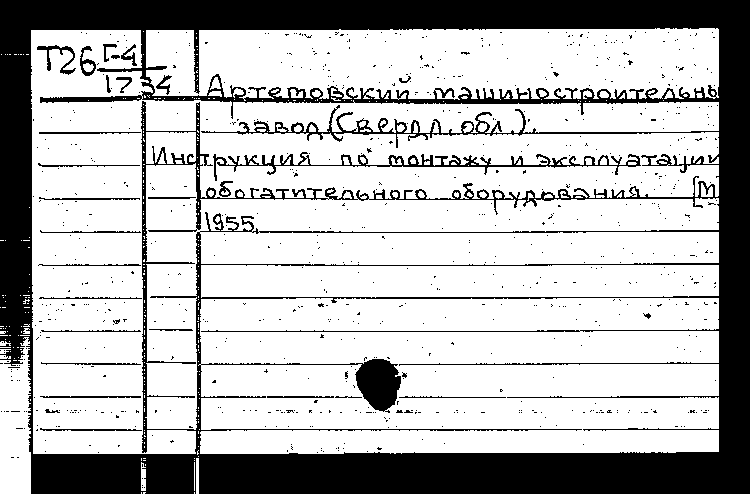 Т26 Г-4
1734
Артемовский машиностроительны
завод (Свердл. обл.).
Инструкция по монтажу и эксплуатации
обогатительного оборудования. [М
1955.